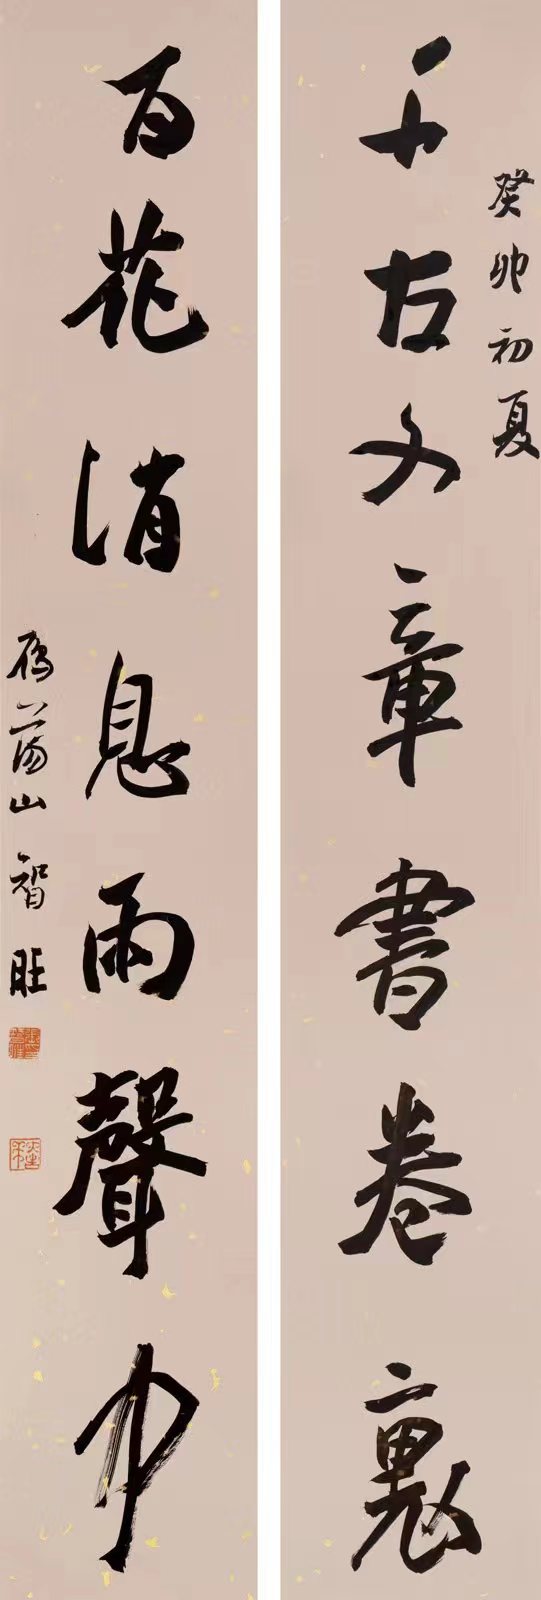 癸卯初夏
千古文章書卷裏
百花消息雨聲中
雁蕩山智旺